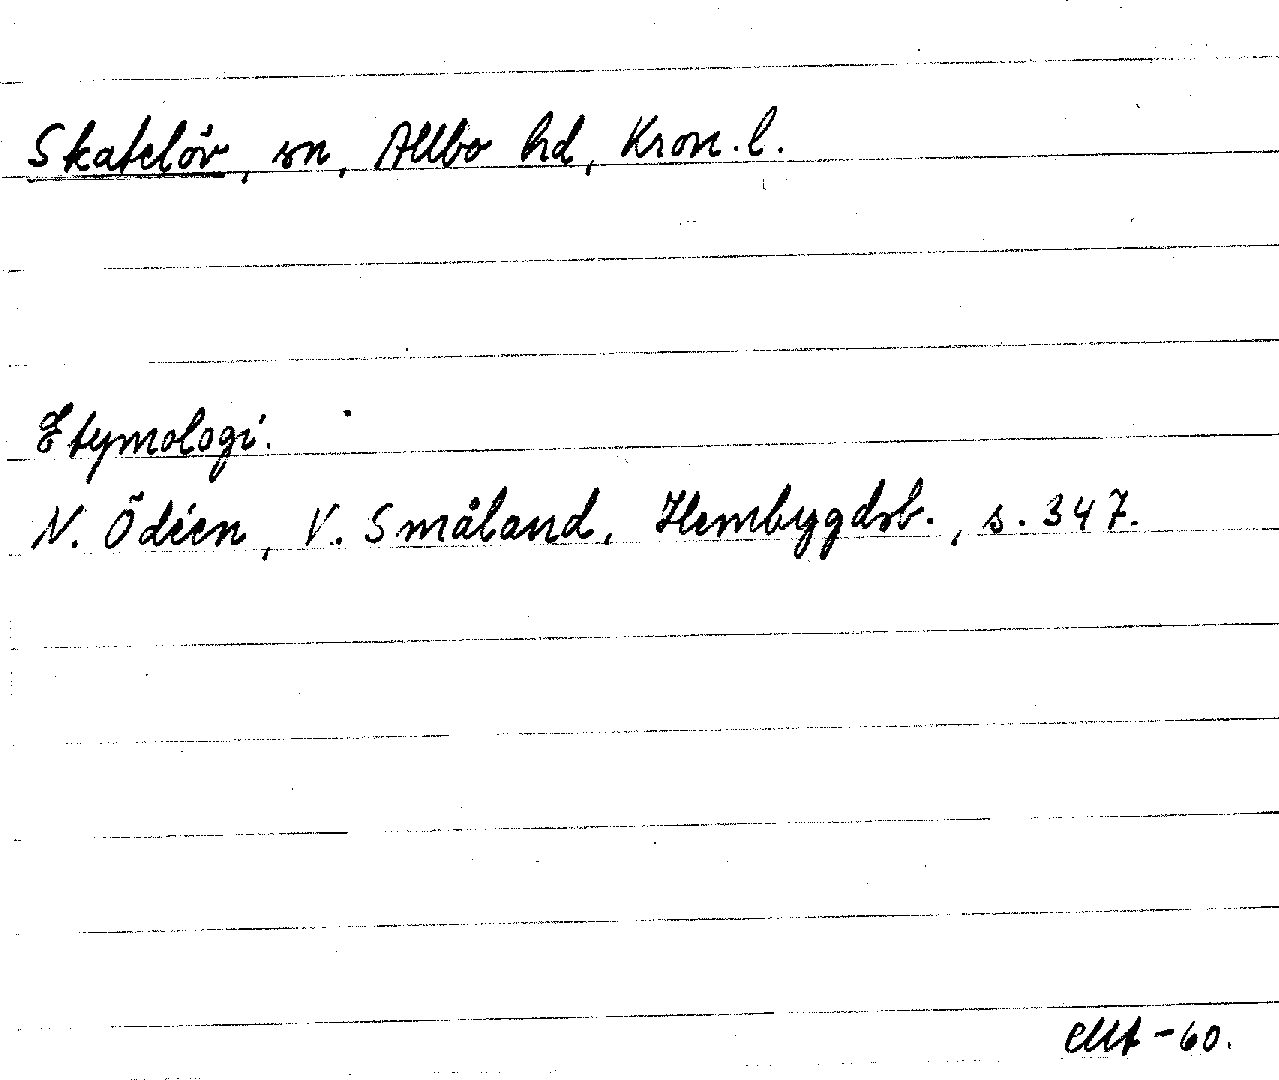 Skatelöv, sn, Allbo hd, Kron. l.
Etymologi.
N. Ödéen, V. Småland, Hembygdsb., s. 347.
-60.